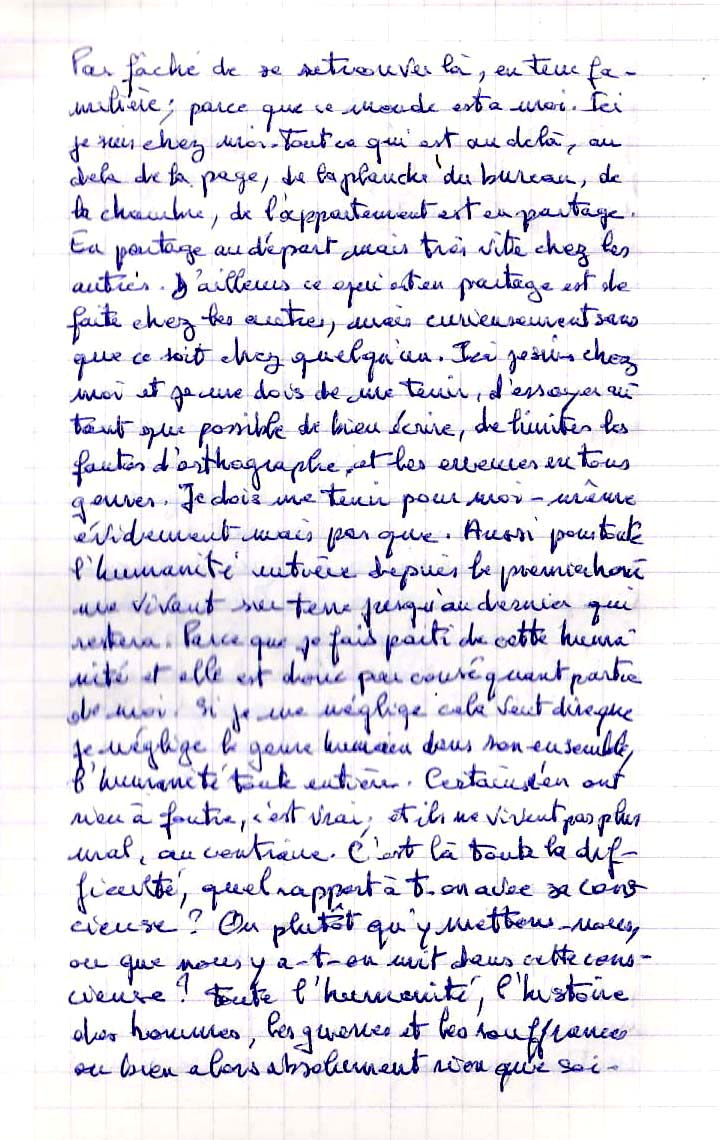 Pas fâché de se retrouver là, en terre fa-
milière ; parce que ce monde est a moi. Ici
je suis chez moi. Tout ce qui est au delà, au
dela de la page, de la planche du bureau, de
la chambre, de l'appartement est en partage.
En partage au départ mais très vite chez les
autres. D'ailleurs ce qui est en partage est de
faite chez les autres, mais curieusement sans
que ce soit chez quelqu'un. Ici je suis chez
moi et je me dois de me tenir, d'essayer au
tant que possible de bien écrire, de limiter les
fautes d'orthographe, et les erreurs en tous
genres. Je dois me tenir pour moi-même
évidement mais pas que. Aussi pour toute
l'humanité entière depuis le premier hom
me vivant sur terre jusqu'au dernier qui
restera. Parce que je fais parti de cette huma
nité et elle est donc par conséquant partie
de moi. Si je me néglige cela veut dire que
je néglige le genre humain dans son ensemble,
l'humanité toute entière. Certains n'en ont
rien à foutre, c'est vrai, et ils ne vivent pas plus
mal, au contraire. C'est là toute la dif-
ficulté, quel rapport à t-on avec sa cons
cience ? Ou plutôt qu'y mettons-nous,
ou que nous y a-t-on mit dans cette cons-
cience ? toute l'humanité, l'histoire
des hommes, les guerres et les souffrances
ou bien alors absolument rien que soi-